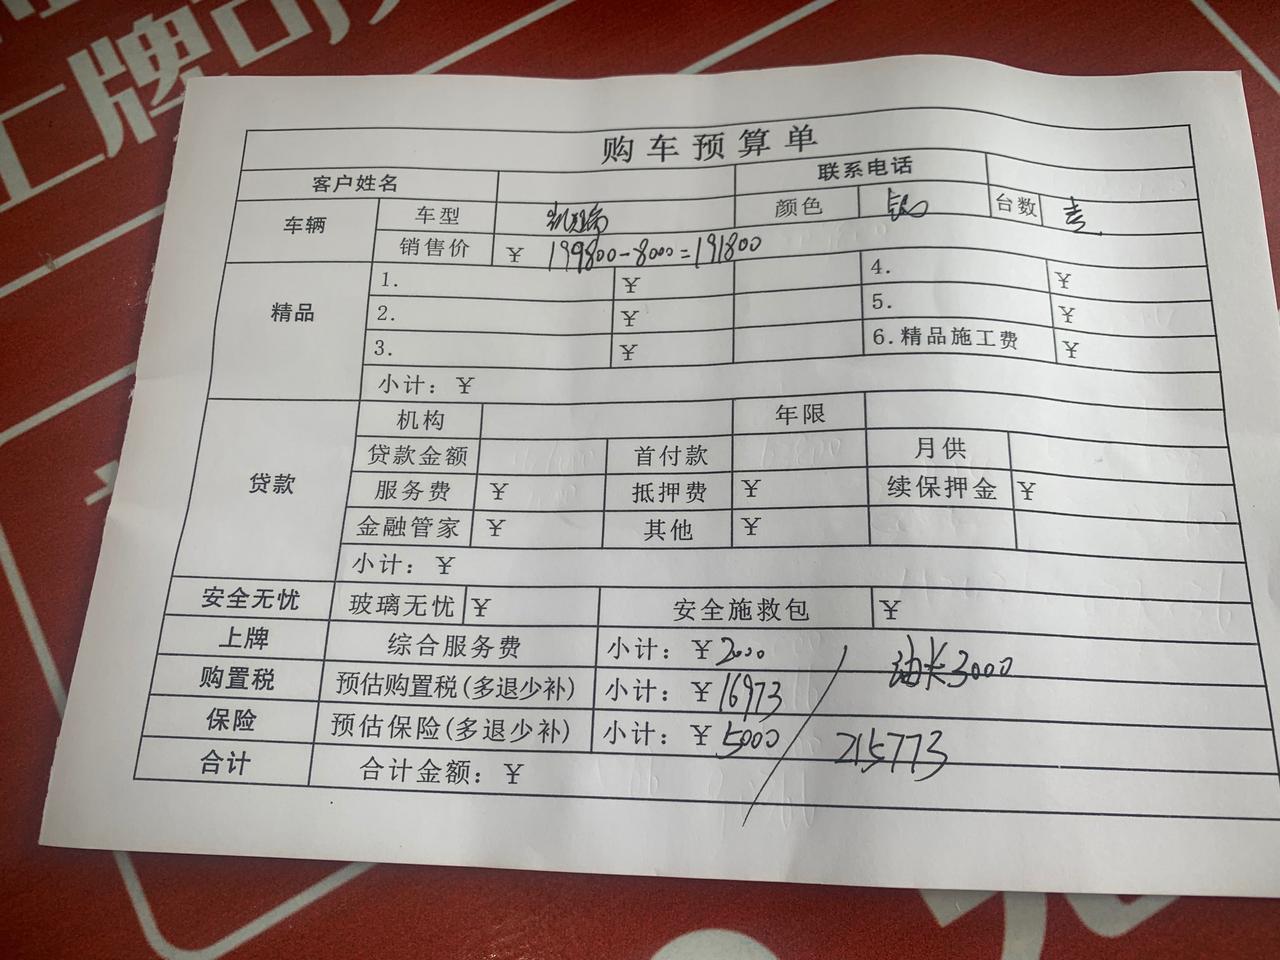 上牌
购车预算单
客户姓名 联系电话
车辆 车型 凯瑞 颜色 台数
销售价 ¥ 199800-8000=191800
精品 1. ¥ 4. ¥
2. ¥ 5. ¥
3. ¥ 6.精品施工费 ¥
小计：¥
贷款 机构 年限
贷款金额 首付款 月供
服务费 ¥ 抵押费 ¥ 续保押金 ¥
金融管家 ¥ 其他 ¥
小计：¥
安全无忧 玻璃无忧 ¥ 安全施救包 ¥
上牌 综合服务费 小计：¥2000 3000
购置税 预估购置税(多退少补) 小计：¥16973
保险 预估保险(多退少补) 小计：¥5000 215773
合计 合计金额：¥